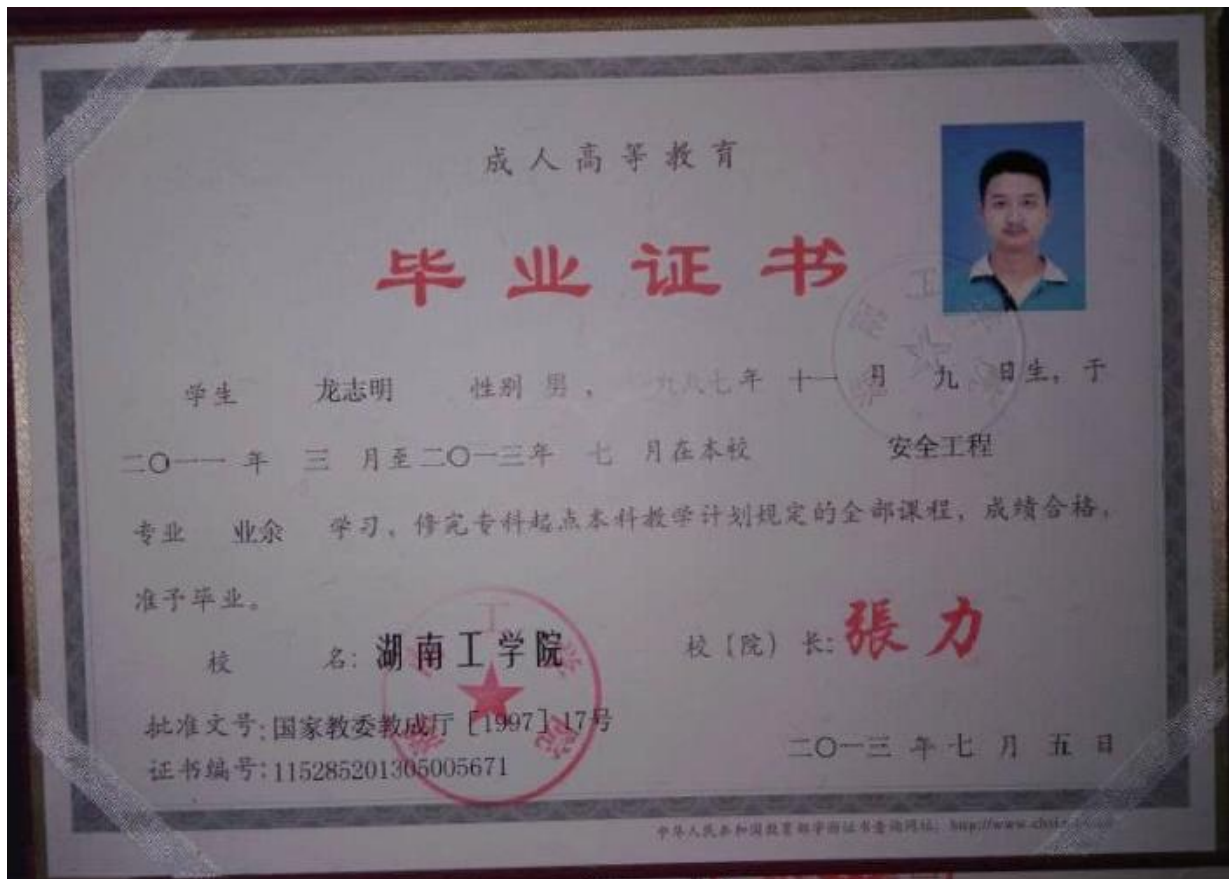 成人高等教育
毕业证书
学生 龙志明 性别 男, 一九八七年 十一 月 九 日生,于
二〇一一 年 三 月至二〇一三年 七 月在本校 安全工程
专业 业余 学习,修完专科起点本科教学计划规定的全部课程,成绩合格,
准予毕业。
校 名: 湖南工学院 校(院)长: 張力
批准文号:国家教委教成厅[1997]17号
二〇一三 年 七 月 五 日
证书编号:115285201305005671
中华人民共和国教育部学历证书查询网址: http://www.chsi.com.cn